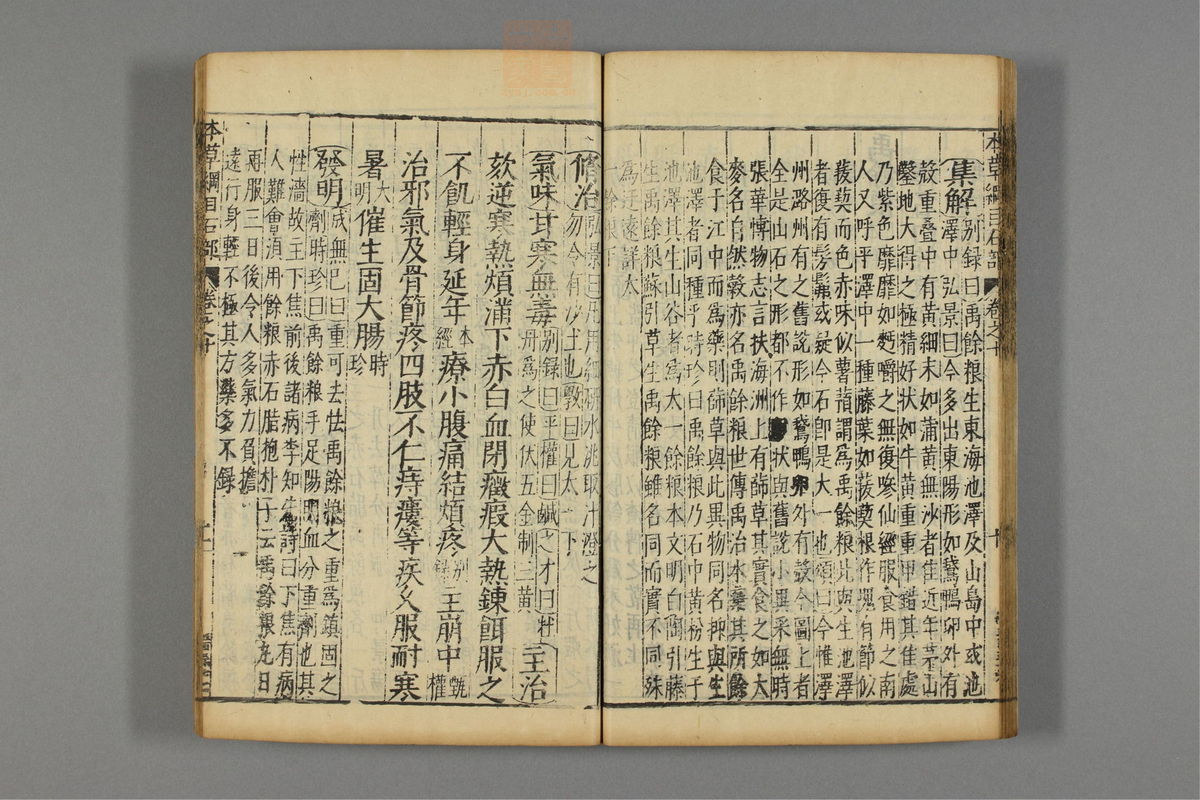 本草綱目石部
卷之十
十
集解別錄曰禹餘粮生東海池澤及山島中或池
澤中弘景曰今多出東陽形如鵞鴨卵外有
殼重叠中有黃細末如蒲黃無沙者佳近年茅山
鑿地大得之極精好狀如牛黃重重甲錯其佳處
乃紫色靡靡如麪嚼之無復磣仙經服食用之南
人又呼平澤中一種藤葉如菝葜根作塊有節似
菝葜而色赤味似薯蕷謂爲禹餘粮此與生池澤
者復有髣髴或疑今石即是大一也頌曰今惟澤
州潞州有之舊說形如鵞鴨卵外有殼今圖上者
全是山石之形都不作卵狀與舊說小異采無時
張華博物志言扶海洲上有蒒草其實食之如大
麥名自然穀亦名禹餘粮世傳禹治水棄其所餘
食于江中而爲藥則蒒草與此異物同名抑與生
池澤者同種乎時珍曰禹餘粮乃石中黃粉生于
池澤其生山谷者爲大一餘粮本文明白陶引藤
生禹餘粮蘇引草生禹餘粮雖名同而實不同殊
爲迂遠詳太
一餘粮下
修治弘景曰凡用細研水洮取汁澄之
勿令有沙土也斅曰見太一下
氣味甘寒無毒別錄曰平權曰鹹之才曰牡
丹爲之使伏五金制三黃
主治
欬逆寒熱煩滿下赤白血閉癥瘕大熱鍊餌服之
不飢輕身延年本經療小腹痛結煩疼別錄主崩中甄權
治邪氣及骨節疼四肢不仁痔瘻等疾久服耐寒
暑大明催生固大腸時珍
發明成無己曰重可去怯禹餘粮之重爲鎮固之
劑時珍曰禹餘粮手足陽明血分重劑也其
性濇故主下焦前後諸病李知先詩曰下焦有病
人難會須用餘粮赤石脂抱朴子云禹餘粮丸日
再服三日後令人多氣力負擔
遠行身輕不極其方藥多不錄
本草綱目石部
卷之十